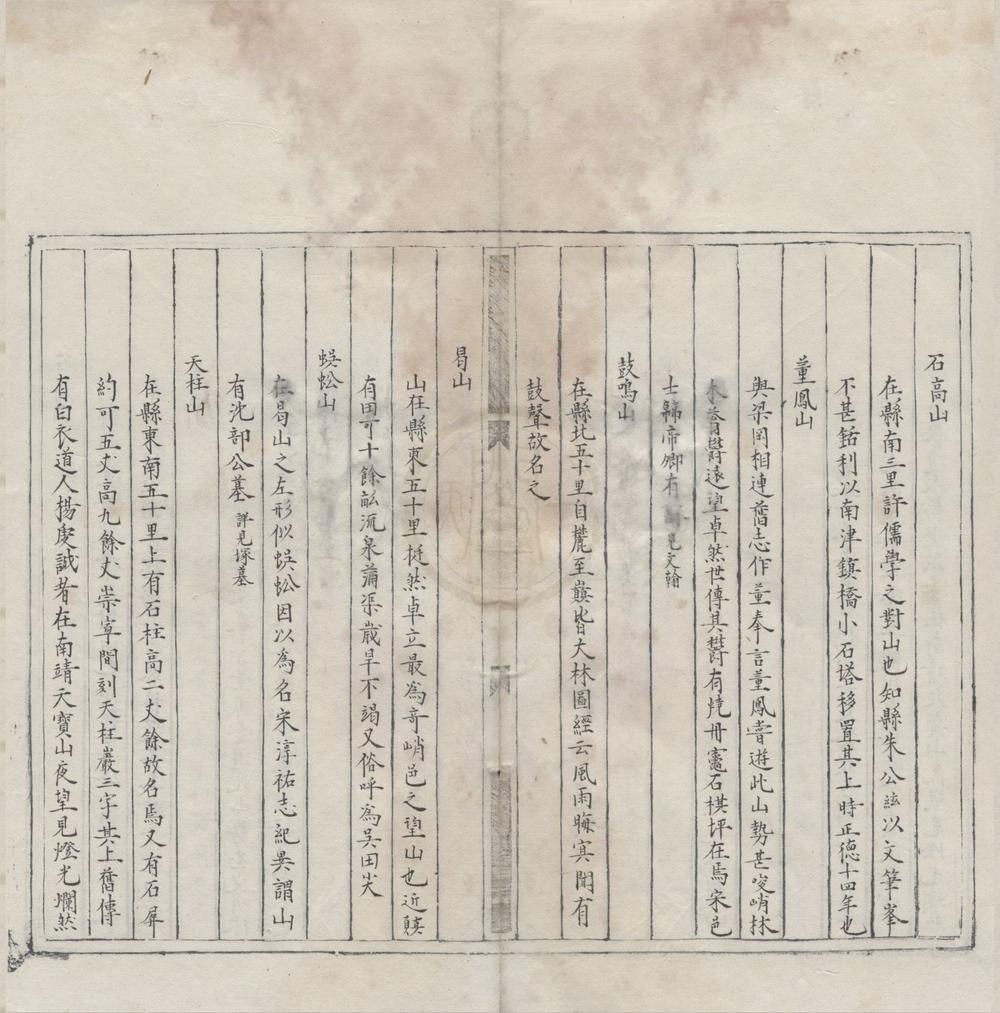 石高山
在縣南三里許儒學之對山也知縣朱公鉉以文筆峯
不甚銛利以南津鎮橋小石塔移置其上時正德十四年也
董鳳山
與梁岡相連舊志作董奉言董鳳嘗遊此山勢甚峻峭林
木蓊欝遠望卓然世傳其欝有燒丹竈石棋坪在焉宋邑
士歸帝卿有詳見文翰
鼓鳴山
在縣北五十里自麓至巔皆大林圖經云風雨晦冥聞有
鼓聲故名之
曷山
山在縣東五十里挺然卓立最為奇峭邑之望山也近巔
有田可十餘畝流泉蒲渠歲旱不竭又俗呼為吳田尖
蜈蚣山
在曷山之左形似蜈蚣因以為名宋淳祐志紀異謂山
有沈部公墓詳見塚墓
天柱山
在縣東南五十里上有石柱高二丈餘故名焉又有石屏
約可五丈高九餘丈崇寧間刻天柱巖三字其上舊傳
有白衣道人揚虔誠者在南靖天寶山夜望見燈光爛然